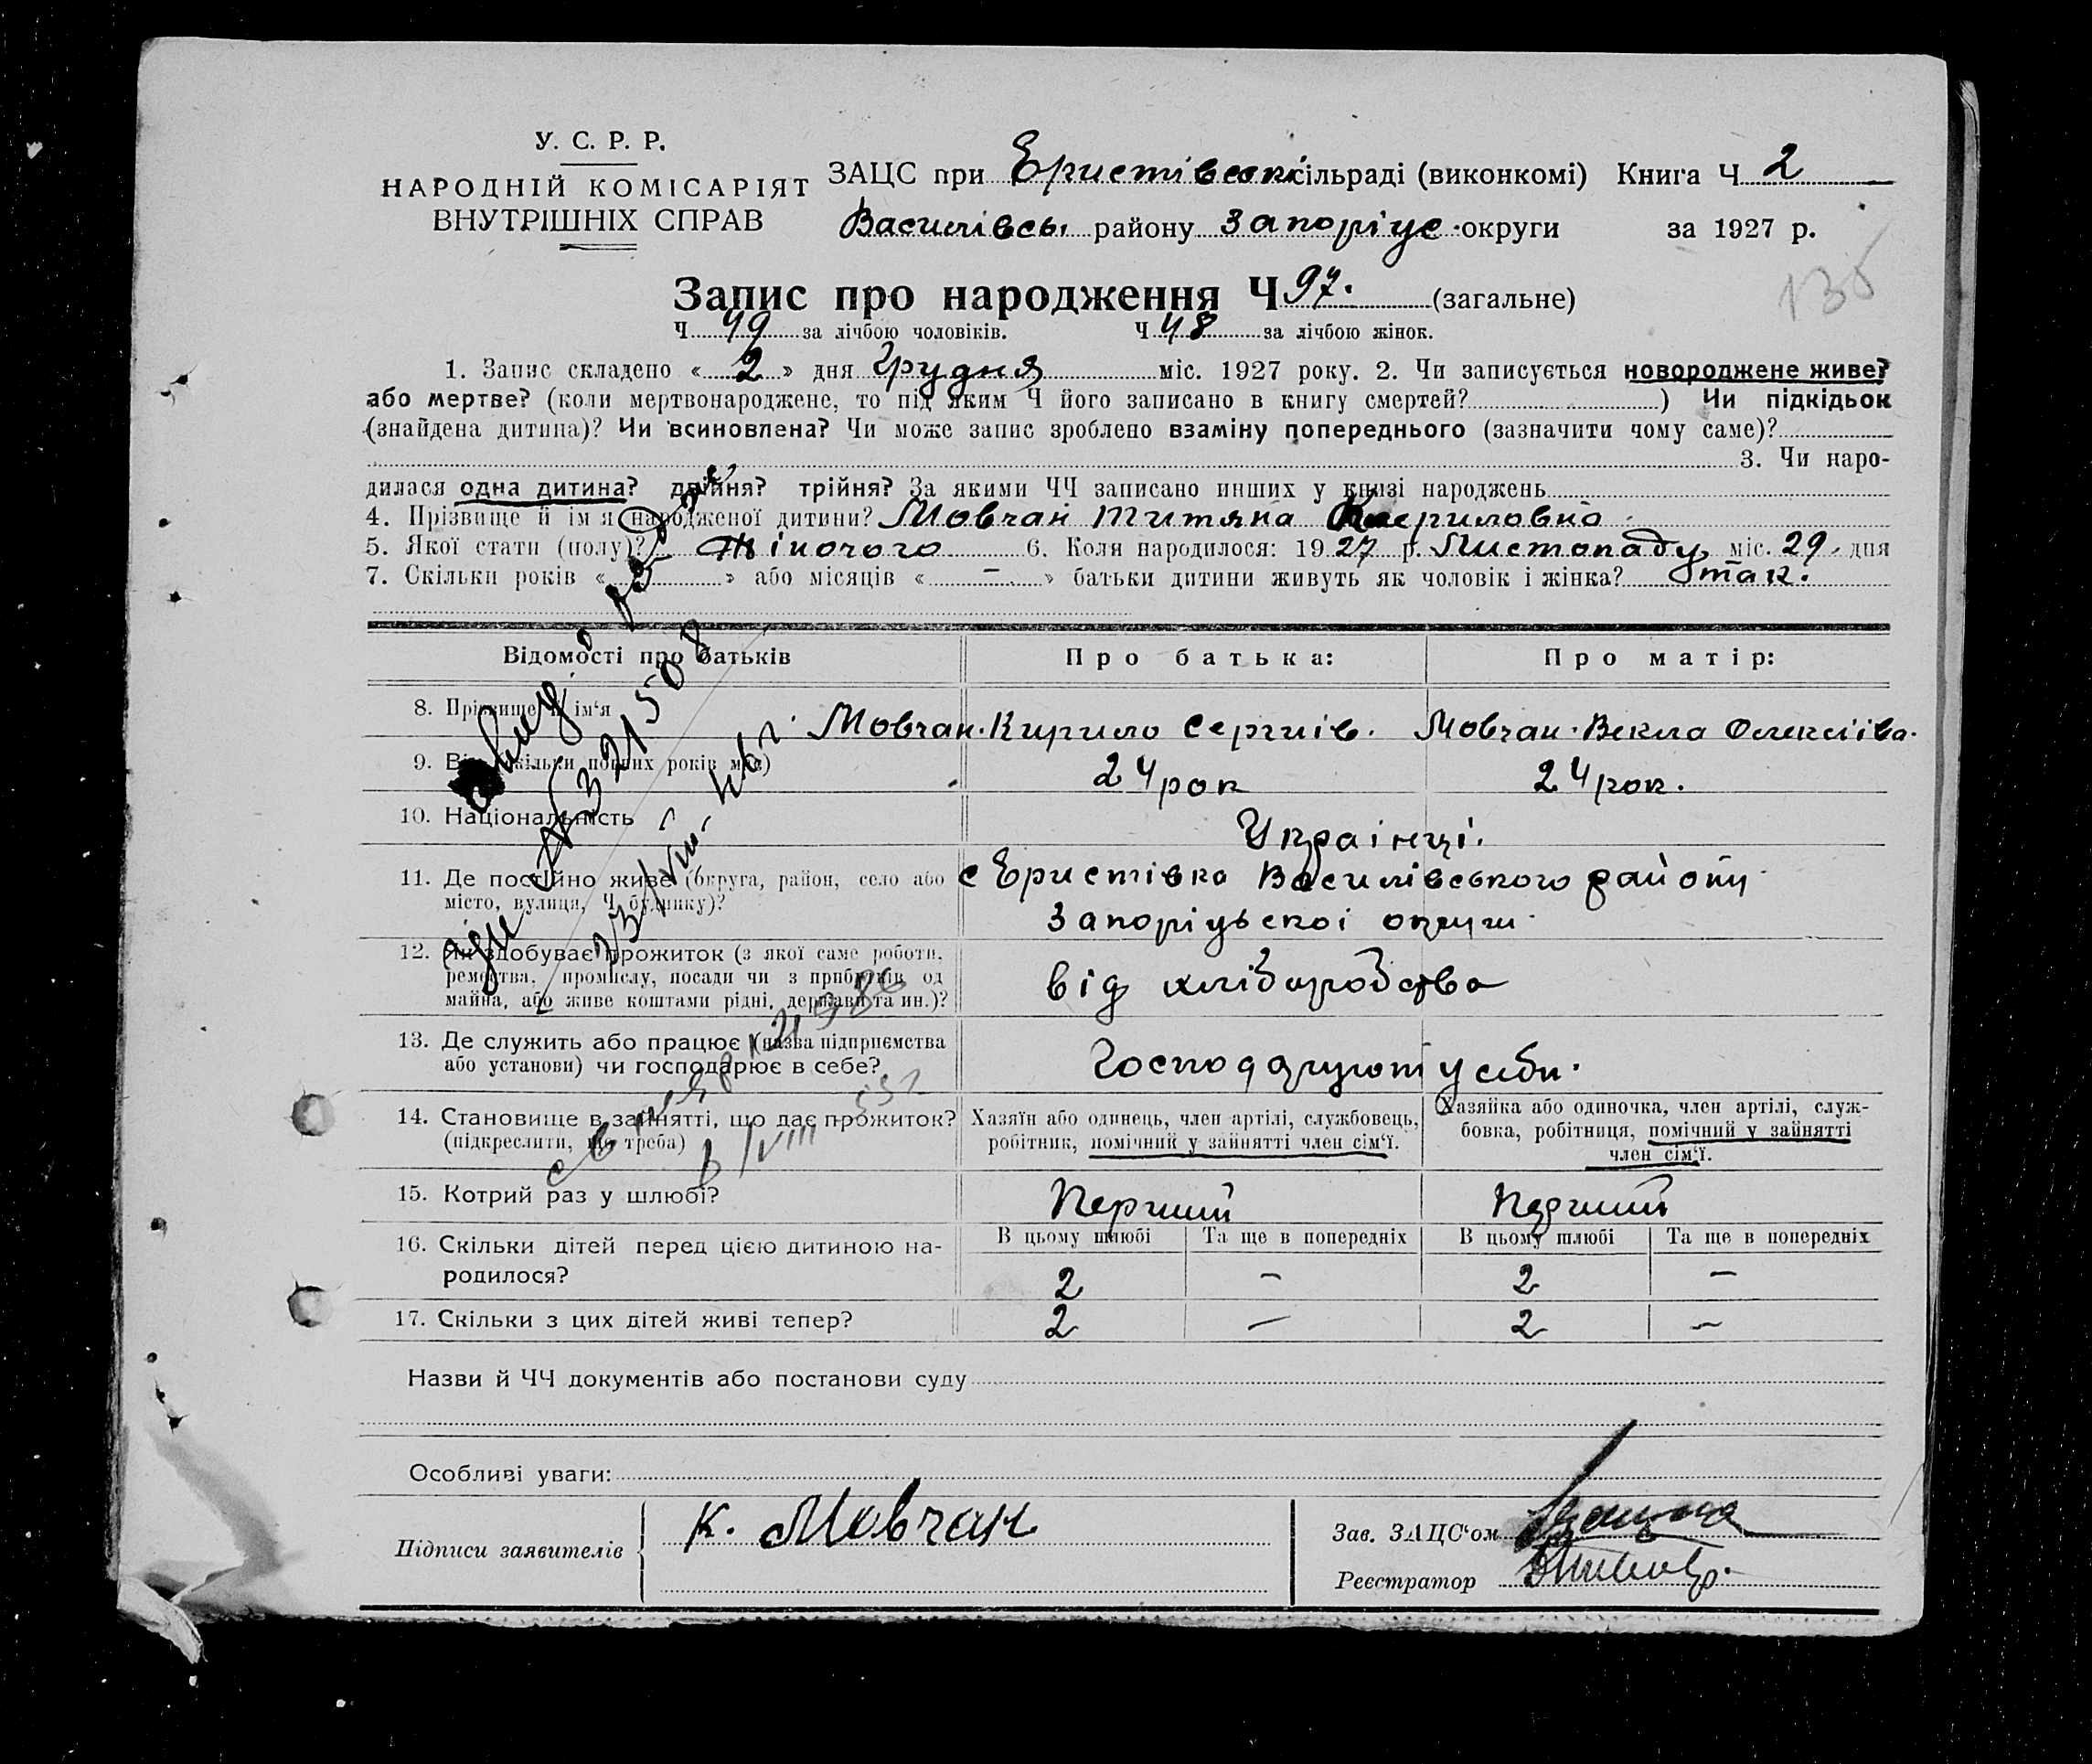 У. С. Р. Р.
НАРОДНІЙ КОМІСАРІЯТ
ВНУТРІШНІХ СПРАВ
ЗАЦС при Еристівській сільраді (виконкомі) Книга Ч 2
Василівськ району Запоріжс. округи за 1927 р.
135
Запис про народження Ч 97. (загальне)
Ч 49 за лічбою чоловіків. Ч 48 за лічбою жінок.
1. Запис складено « 2 » дня Грудня міс. 1927 року. 2. Чи записується новороджене живе?
або мертве? (коли мертвонароджене, то під яким Ч його записано в книгу смертей? ) Чи підкідьок
(знайдена дитина)? Чи всиновлена? Чи може запис зроблено взаміну попереднього (зазначити чому саме)?
3. Чи наро-
дилася одна дитина? двійня? трійня? За якими ЧЧ записано инших у книзі народжень
4. Прізвище й ім'я народженої дитини? Мовчан Титяна Кериловна
5. Якої стати (полу)? Жіночого 6. Коли народилося: 1927 р. Листопаду міс. 29 дня
7. Скільки років « 5 » або місяців « – » батьки дитини живуть як чоловік і жінка? так.
Відомості про батьків Про батька: Про матір:
8. Прізвище й ім'я Мовчан. Кирило Сергиів. Мовчан. Векла Олексіівна.
9. Вік (скільки повних років має) 24 рок 24 рок.
10. Національність Украінці.
11. Де постійно живе (округа, район, село або с Еристівка Василівського району
місто, вулиця, Ч будинку)? Запоріжьскоі округи.
12. Як здобуває прожиток (з якої саме роботи, ремества, промислу, посади чи з прибутків од
майна, або живе коштами рідні, держави та ин.)? від хліборобства
13. Де служить або працює (назва підприємства
або установи) чи господарює в себе? Господарюют у себи.
14. Становище в зайнятті, що дає прожиток? Хазяїн або одинець, член артілі, службовець, Хазяйка або одиночка, член артілі, служ-
(підкреслити, що треба) робітник, помічний у зайнятті член сім'ї. бовка, робітниця, помічний у зайнятті
член сім'ї.
15. Котрий раз у шлюбі? Перший Перший
16. Скільки дітей перед цією дитиною на- В цьому шлюбі Та ще в попередніх В цьому шлюбі Та ще в попередніх
родилося? 2 – 2 –
17. Скільки з цих дітей живі тепер? 2 – 2 –
Назви й ЧЧ документів або постанови суду
Особливі уваги:
Підписи заявителів К. Мовчан
Зав. ЗАЦС'ом
Реєстратор
№ 321508